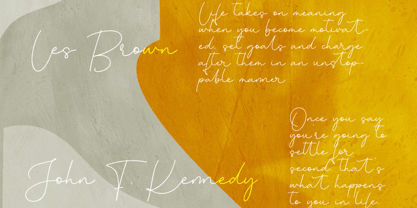 Les Brown
Life takes on meaning
when you become motivat-
ed, set goals and charge
after them in an unstop-
pable manner
John F. Kennedy
Once you say
you're going to
settle for
second, that's
what happens
to you in life.